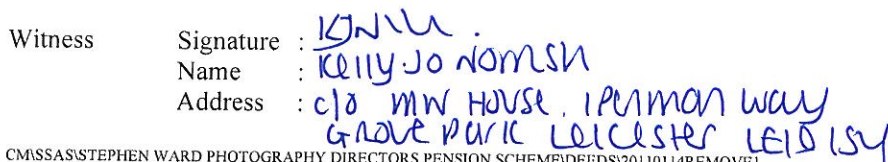 Witness Signature :
Name : Kelly-Jo Nomsh
Address : c/o MW House, 1 Penman Way
Grove Park Leicester LE19 1SY
CM\SSAS\STEPHEN WARD PHOTOGRAPHY DIRECTORS PENSION SCHEME\DEEDS\20110114REMOVE1